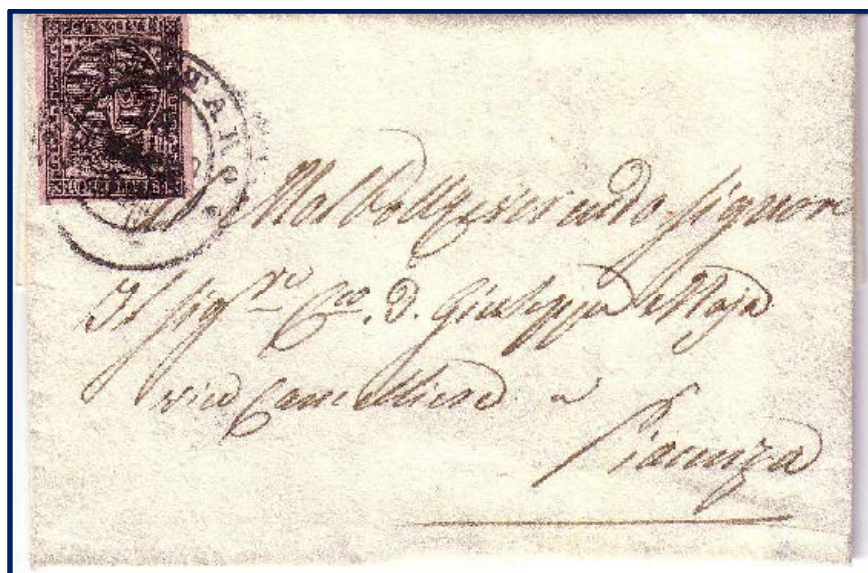 TARO
Al Molto Reverendo Signore
Il Sig.re C.co D. Giuseppe
vice Cancelliere a
Piacenza